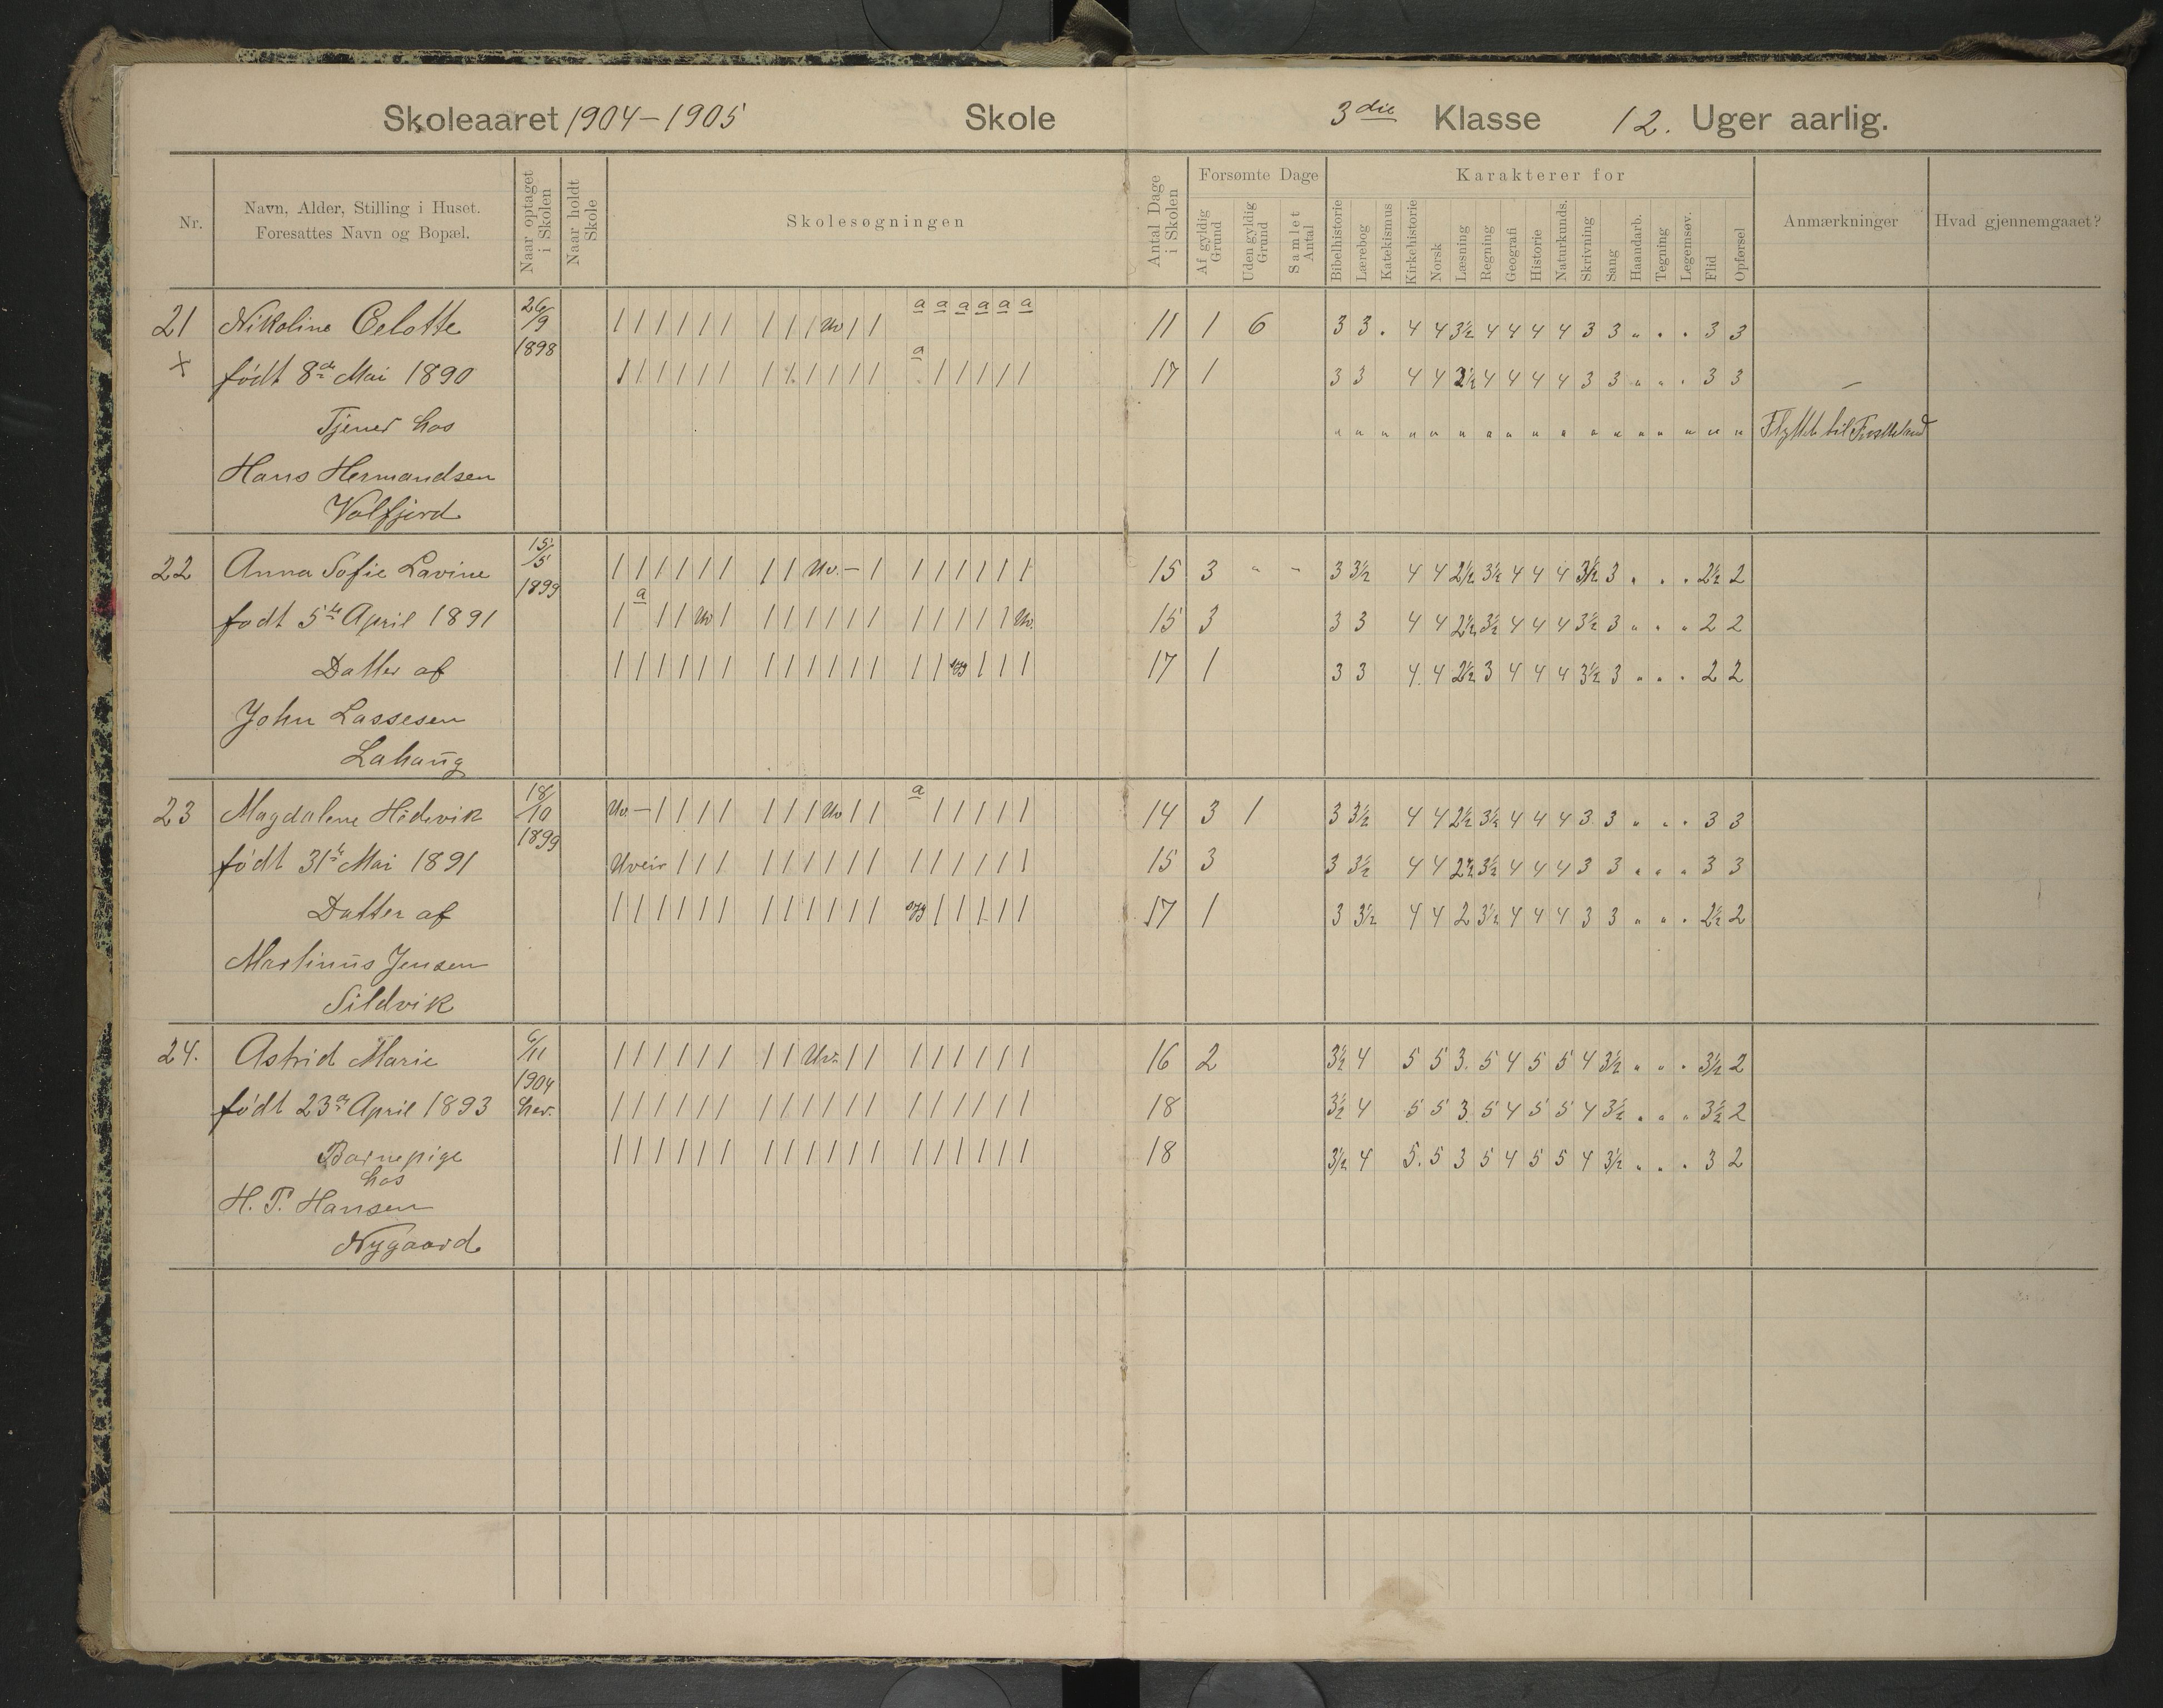 Skoleaaret 1904-1905 Skole 3die Klasse 12. Uger aarlig.
Nr. Navn, Alder, Stilling i Huset. Foresattes Navn og Bopæl. Naar optaget i Skolen Naar holdt Skole Skolesøgningen Antal Dage i Skolen Forsømte Dage Af gyldig Grund Uden gyldig Grund Samlet Antal Karakterer for Bibelhistorie Lærebog Katekismus Kirkehistorie Norsk Læsning Regning Geografi Historie Naturkunds. Skrivning Sang Haandarb. Tegning Legemsøv. Flid Opførsel Anmærkninger Hvad gjennemgaaet?
21 Nikoline Celotte 26/9 1898 / / / / / / / / / Uv / / a a a a a a 11 1 6 3 3 . 4 4 3½ 4 4 4 4 3 3 " . . 3 3
x født 8de Mai 1890 / / / / / / / / / / / / a / / / / / 17 1 3 3 4 4 2½ 4 4 4 4 3 3 " " . 3 3 –
Tjener hos " " " " " " " " " " " " " " " " " Flyttet til
Hans Hermandsen
Valfjord
22 Anna Sofie Lavine 15/5 1899 / / / / / / / / Uv. – / / / / / / / 15 3 " - 3 3½ 4 4 2½ 3½ 4 4 4 3½ 3 . . . 2½ 2
født 5te April 1891 / a / / Uv / / / / / / / / / / / / Uv. 15 3 3 3 4 4 2½ 3½ 4 4 4 3½ 3 " . " 2 2
Datter af / / / / / / / / / / / / / / syg / / / 17 1 3 3 4 4 2½ 3 4 4 4 3½ 3 " . . 2 2
John Lassesen
Lahaug
23 Magdalene Hidevik 18/10 1899 Uv. – / / / / / / / Uv / / a / / / / / 14 3 1 3 3½ 4 4 2½ 3½ 4 4 4 3 3 " " . 3 3
født 31te Mai 1891 Uveir / / / / / / / / / / / / / / / 15 3 3 3½ 4 4 2½ 3½ 4 4 4 3 3 " " " 3 3
Datter af / / / / / / / / / / / / syg / / / / / 17 1 3 3½ 4 4 2 3½ 4 4 4 3 3 " " . 2½ 2
Martinus Jensen
Sildvik
24. Astrid Marie 6/11 1904 / / / / / / / / Uv. / / / / / / / / 16 2 3½ 4 5 5 3 5 4 5 5 4 3½ " " . 3½ 2
født 23de April 1893 her. / / / / / / / / / / / / / / / / / / 18 3½ 4 5 5 3 5 4 5 5 4 3½ " . " 3½ 2
Barnepige / / / / / / / / / / / / / / / / / / 18 3½ 4 5. 5 3 5 4 5 5 4 3½ " . . 3 2
hos
H. P. Hansen
Nygaard